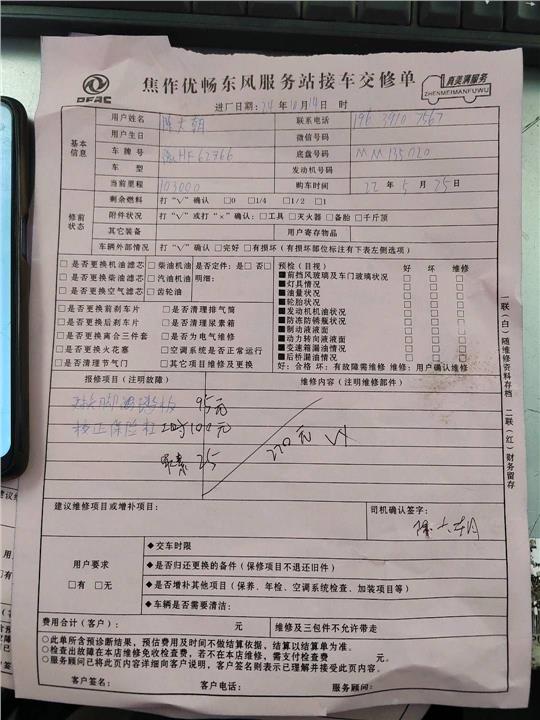 PFAC
焦作优畅东风服务站接车交修单
真美满服务
ZHENMEIMANFUWU
进厂日期:24年10月14日 时
基本信息
用户姓名 联系电话 196 3910 7567
用户生日 微信号码
车牌号 HF62766 底盘号码 MM135020
车型 发动机号码
当前里程 103000 购车时间 22年5月25日
修前状态
剩余燃料 打“V”确认 □0 □1/4 □1/2 □1
附件状况 打“V”或打“×”确认:□工具 □灭火器 □备胎 □千斤顶
其它装备 用户寄存物品
车辆外部情况 打“V”确认 □完好 □有损坏(有损坏部位标注有下表左侧选项)
□是否更换机油滤芯 □柴油机油 是否定件:是□否□
□是否更换柴油滤芯 □汽油机油 明细:
□是否更换空气滤芯 □齿轮油
□是否更换前刹车片 □是否清理排气筒
□是否更换后刹车片 □是否清理尿素箱
□是否更换离合三件套 □是否为电气维修
□是否更换火花塞 □空调系统是否正常运行
□是否清理节气门 □其它项目维修及更换
预检(目视) 好 坏 维修
■前挡风玻璃及车门玻璃状况 □ □ □
■灯具情况 □ □ □
■油量状况 □ □ □
■轮胎状况 □ □ □
■发动机机油状况 □ □ □
■防冻防锈瓶状况 □ □ □
■制动液液面 □ □ □
■动力转向液液面 □ □ □
■变速箱漏油情况 □ □ □
■后桥漏油情况 □ □ □
好:合格 坏:有故障需维修 维修:用户确认维修
报修项目(注明故障) 维修内容(注明维修部件)
95元
校正保险杠 工时100元
尿素 25
220元
VX
建议维修项目或增补项目: 司机确认签字:
用户要求
□有 □无
◆交车时限
◆是否归还更换的备件(保修项目不退还旧件)
◆是否增补其他项目(保养、年检、空调系统检查、加装项目等)
◆车辆是否需要清洁:
费用合计(客户): 元 维修及三包件不允许带走
○此单所含预诊断结果,预估费用及时间不做结算依据,结算以结算单为准。
○检查出故障在本店维修免收检查费,若不在本店维修,需支付检查费 元。
○服务顾问已将此页内容详细向客户说明,客户签名则表示已理解并接受此页内容。
客户签名: 客户电话: 服务顾问:
一联(白)随维修资料存档 二联(红)财务留存